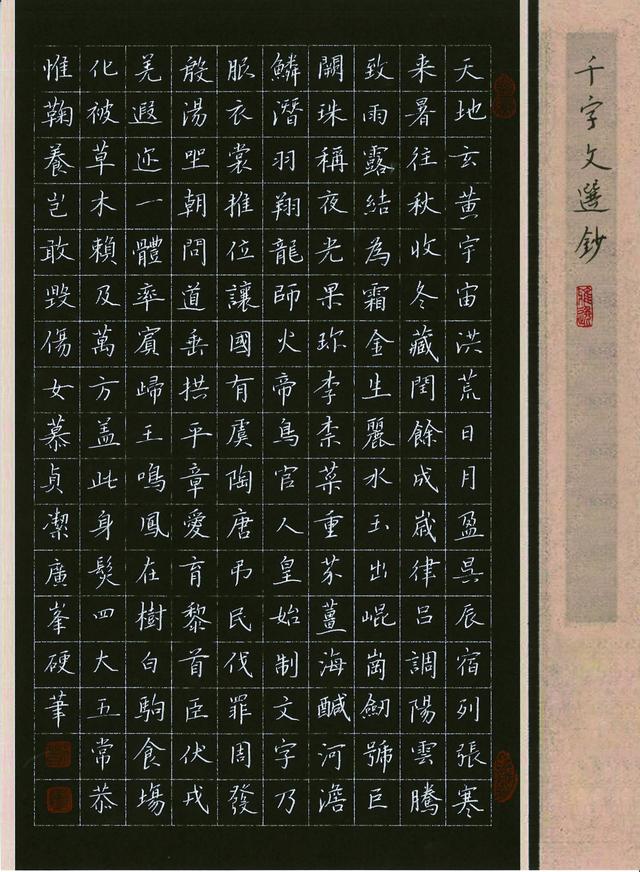 千字文選鈔
天地玄黄宇宙洪荒日月盈昃辰宿列張寒
来暑往秋收冬藏閏餘成歳律吕調陽雲騰
致雨露結為霜金生麗水玉出崐崗劒號巨
闕珠稱夜光果珎李柰菜重芥薑海醎河澹
鱗潛羽翔龍師火帝鳥官人皇始制文字乃
服衣裳推位讓國有虞陶唐弔民伐罪周發
殷湯坐朝問道垂拱平章愛育黎首臣伏戎
羌遐迩一體率賓歸王鳴鳳在樹白駒食場
化被草木賴及萬方盖此身髮四大五常恭
惟鞠養豈敢毁傷女慕貞潔廣峯硬筆